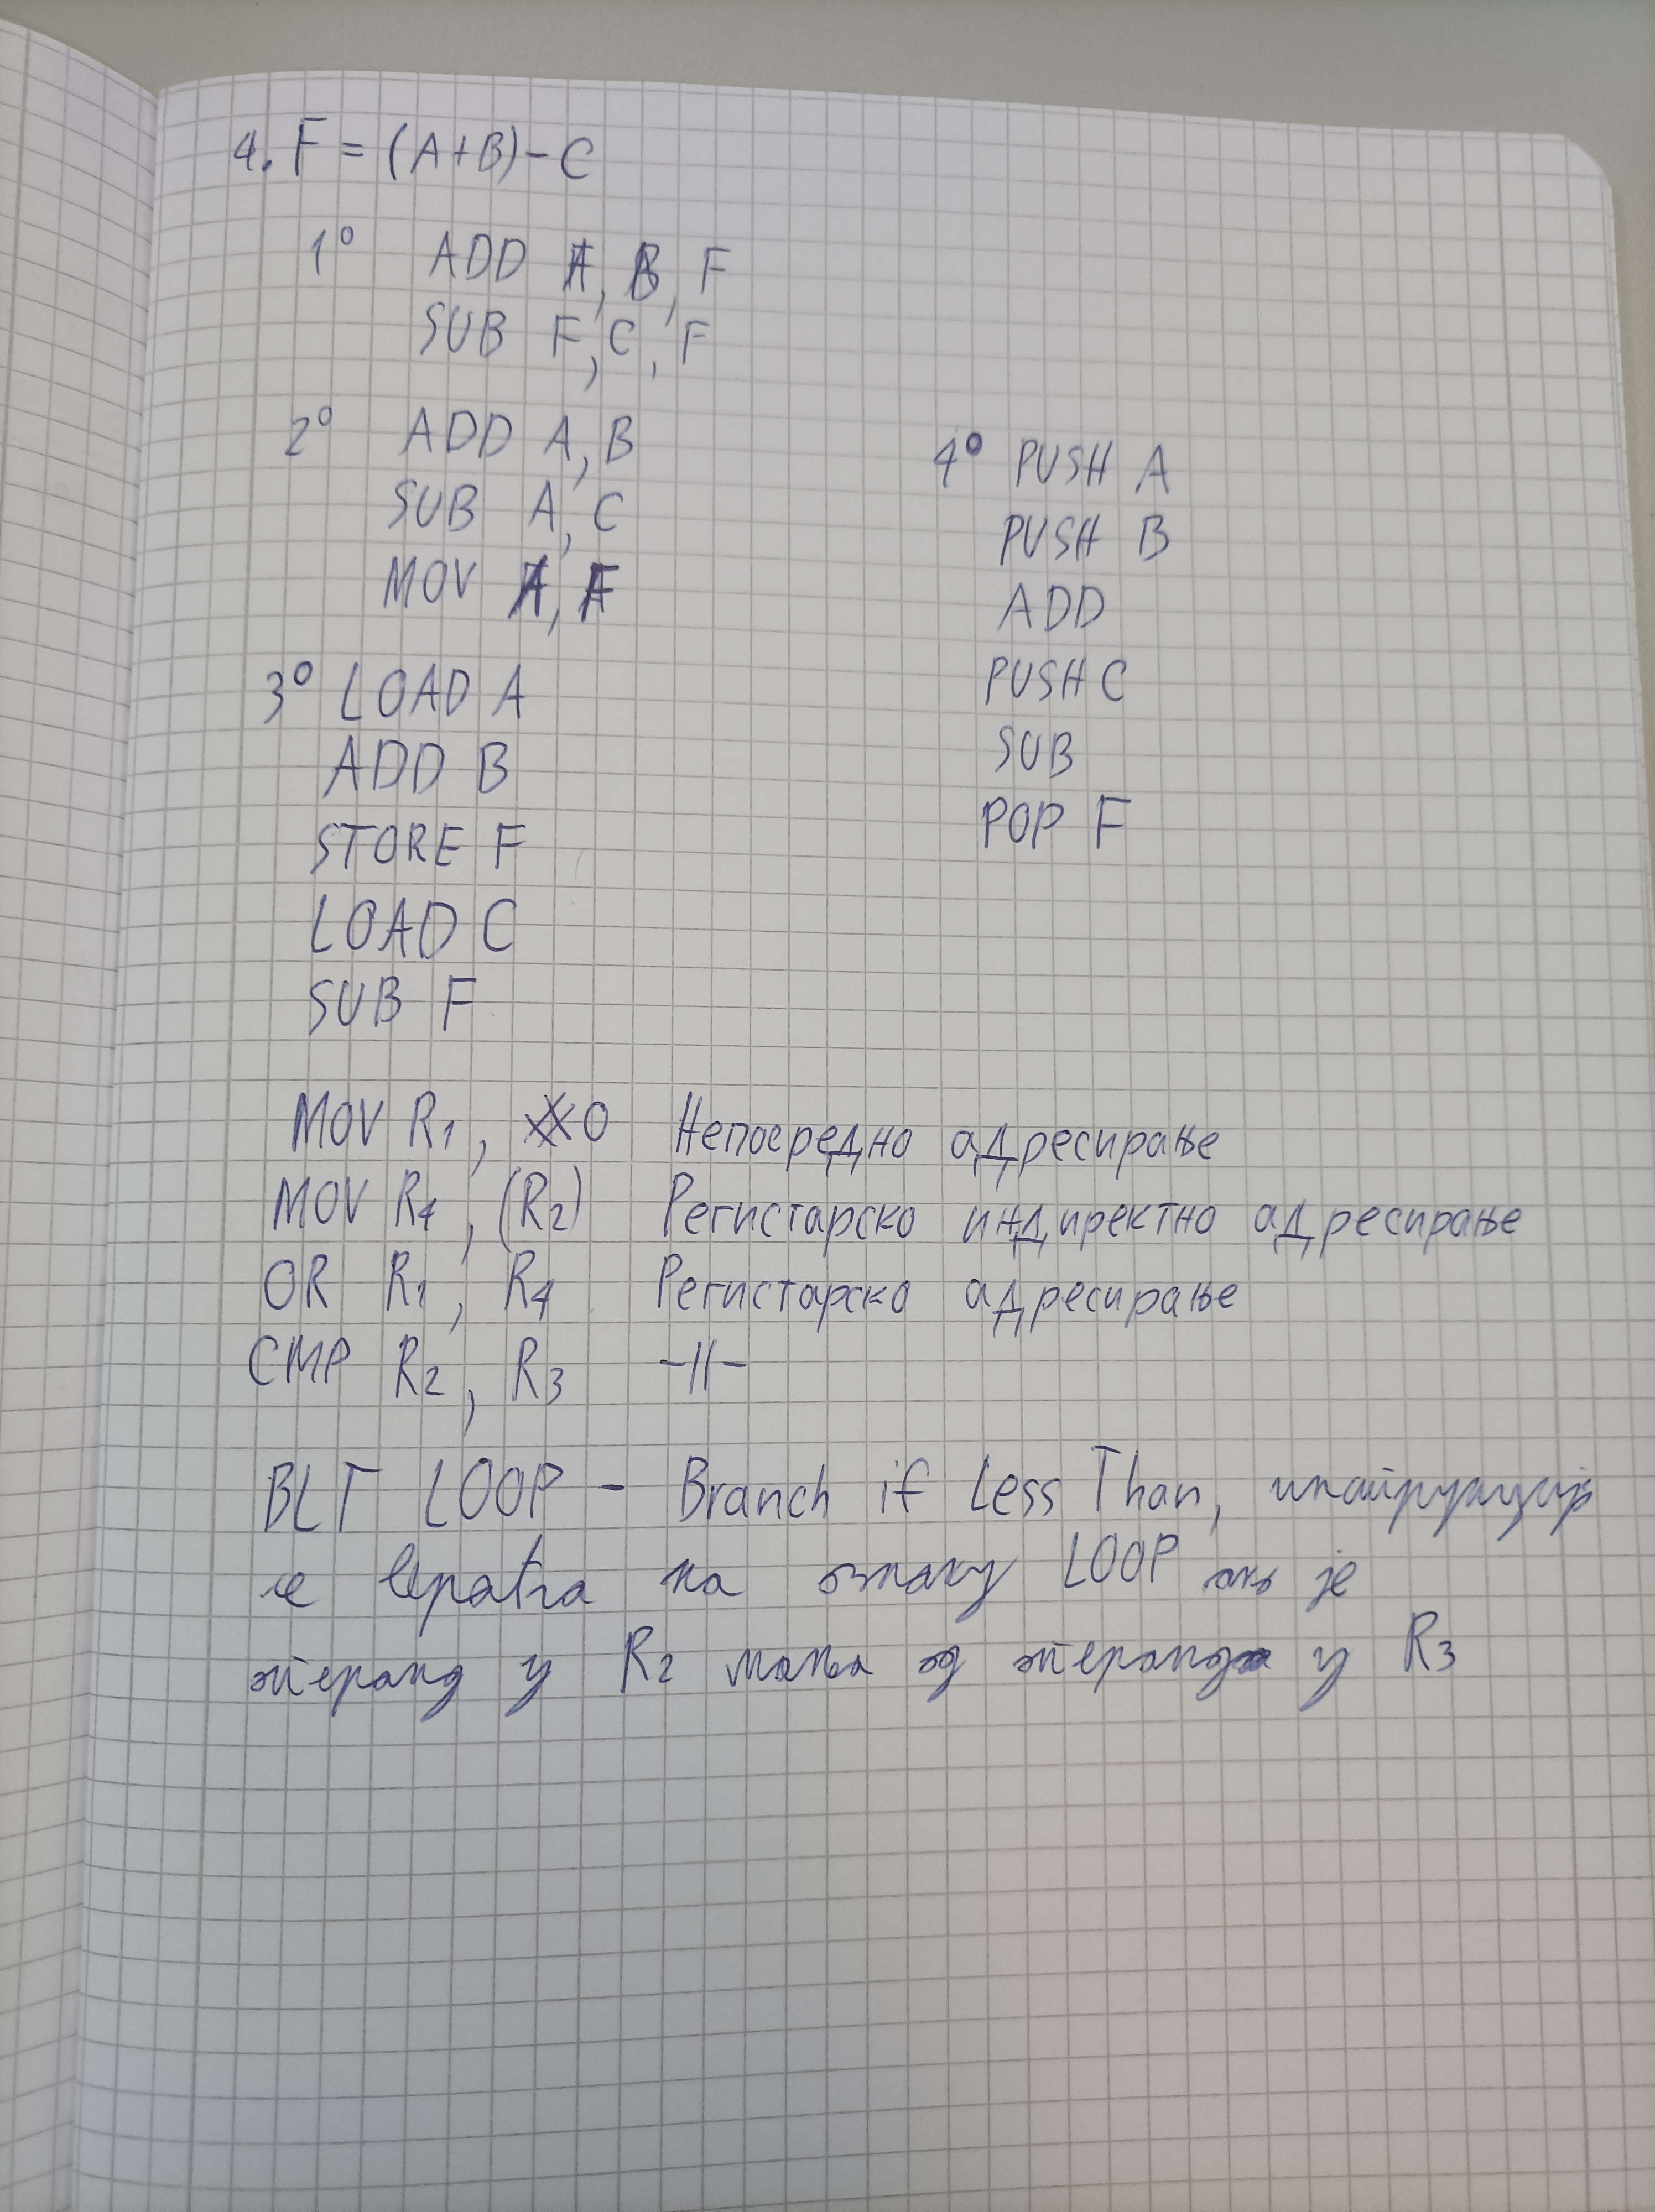 4. F = (A+B) - C
1° ADD A, B, F
SUB F, C, F
2° ADD A, B
SUB A, C
MOV A, F
3° LOAD A
ADD B
STORE F
LOAD C
SUB F
4° PUSH A
PUSH B
ADD
PUSH C
SUB
POP F
MOV R1, 0 Непосредно адресирање
MOV R4, (R2) Регистарско индиректно адресирање
OR R1, R4 Регистарско адресирање
CMP R2, R3 -||-
BLT LOOP - Branch if Less Than,
се враћа на ознаку LOOP ако је
операнд у R2 мањи од операнда у R3